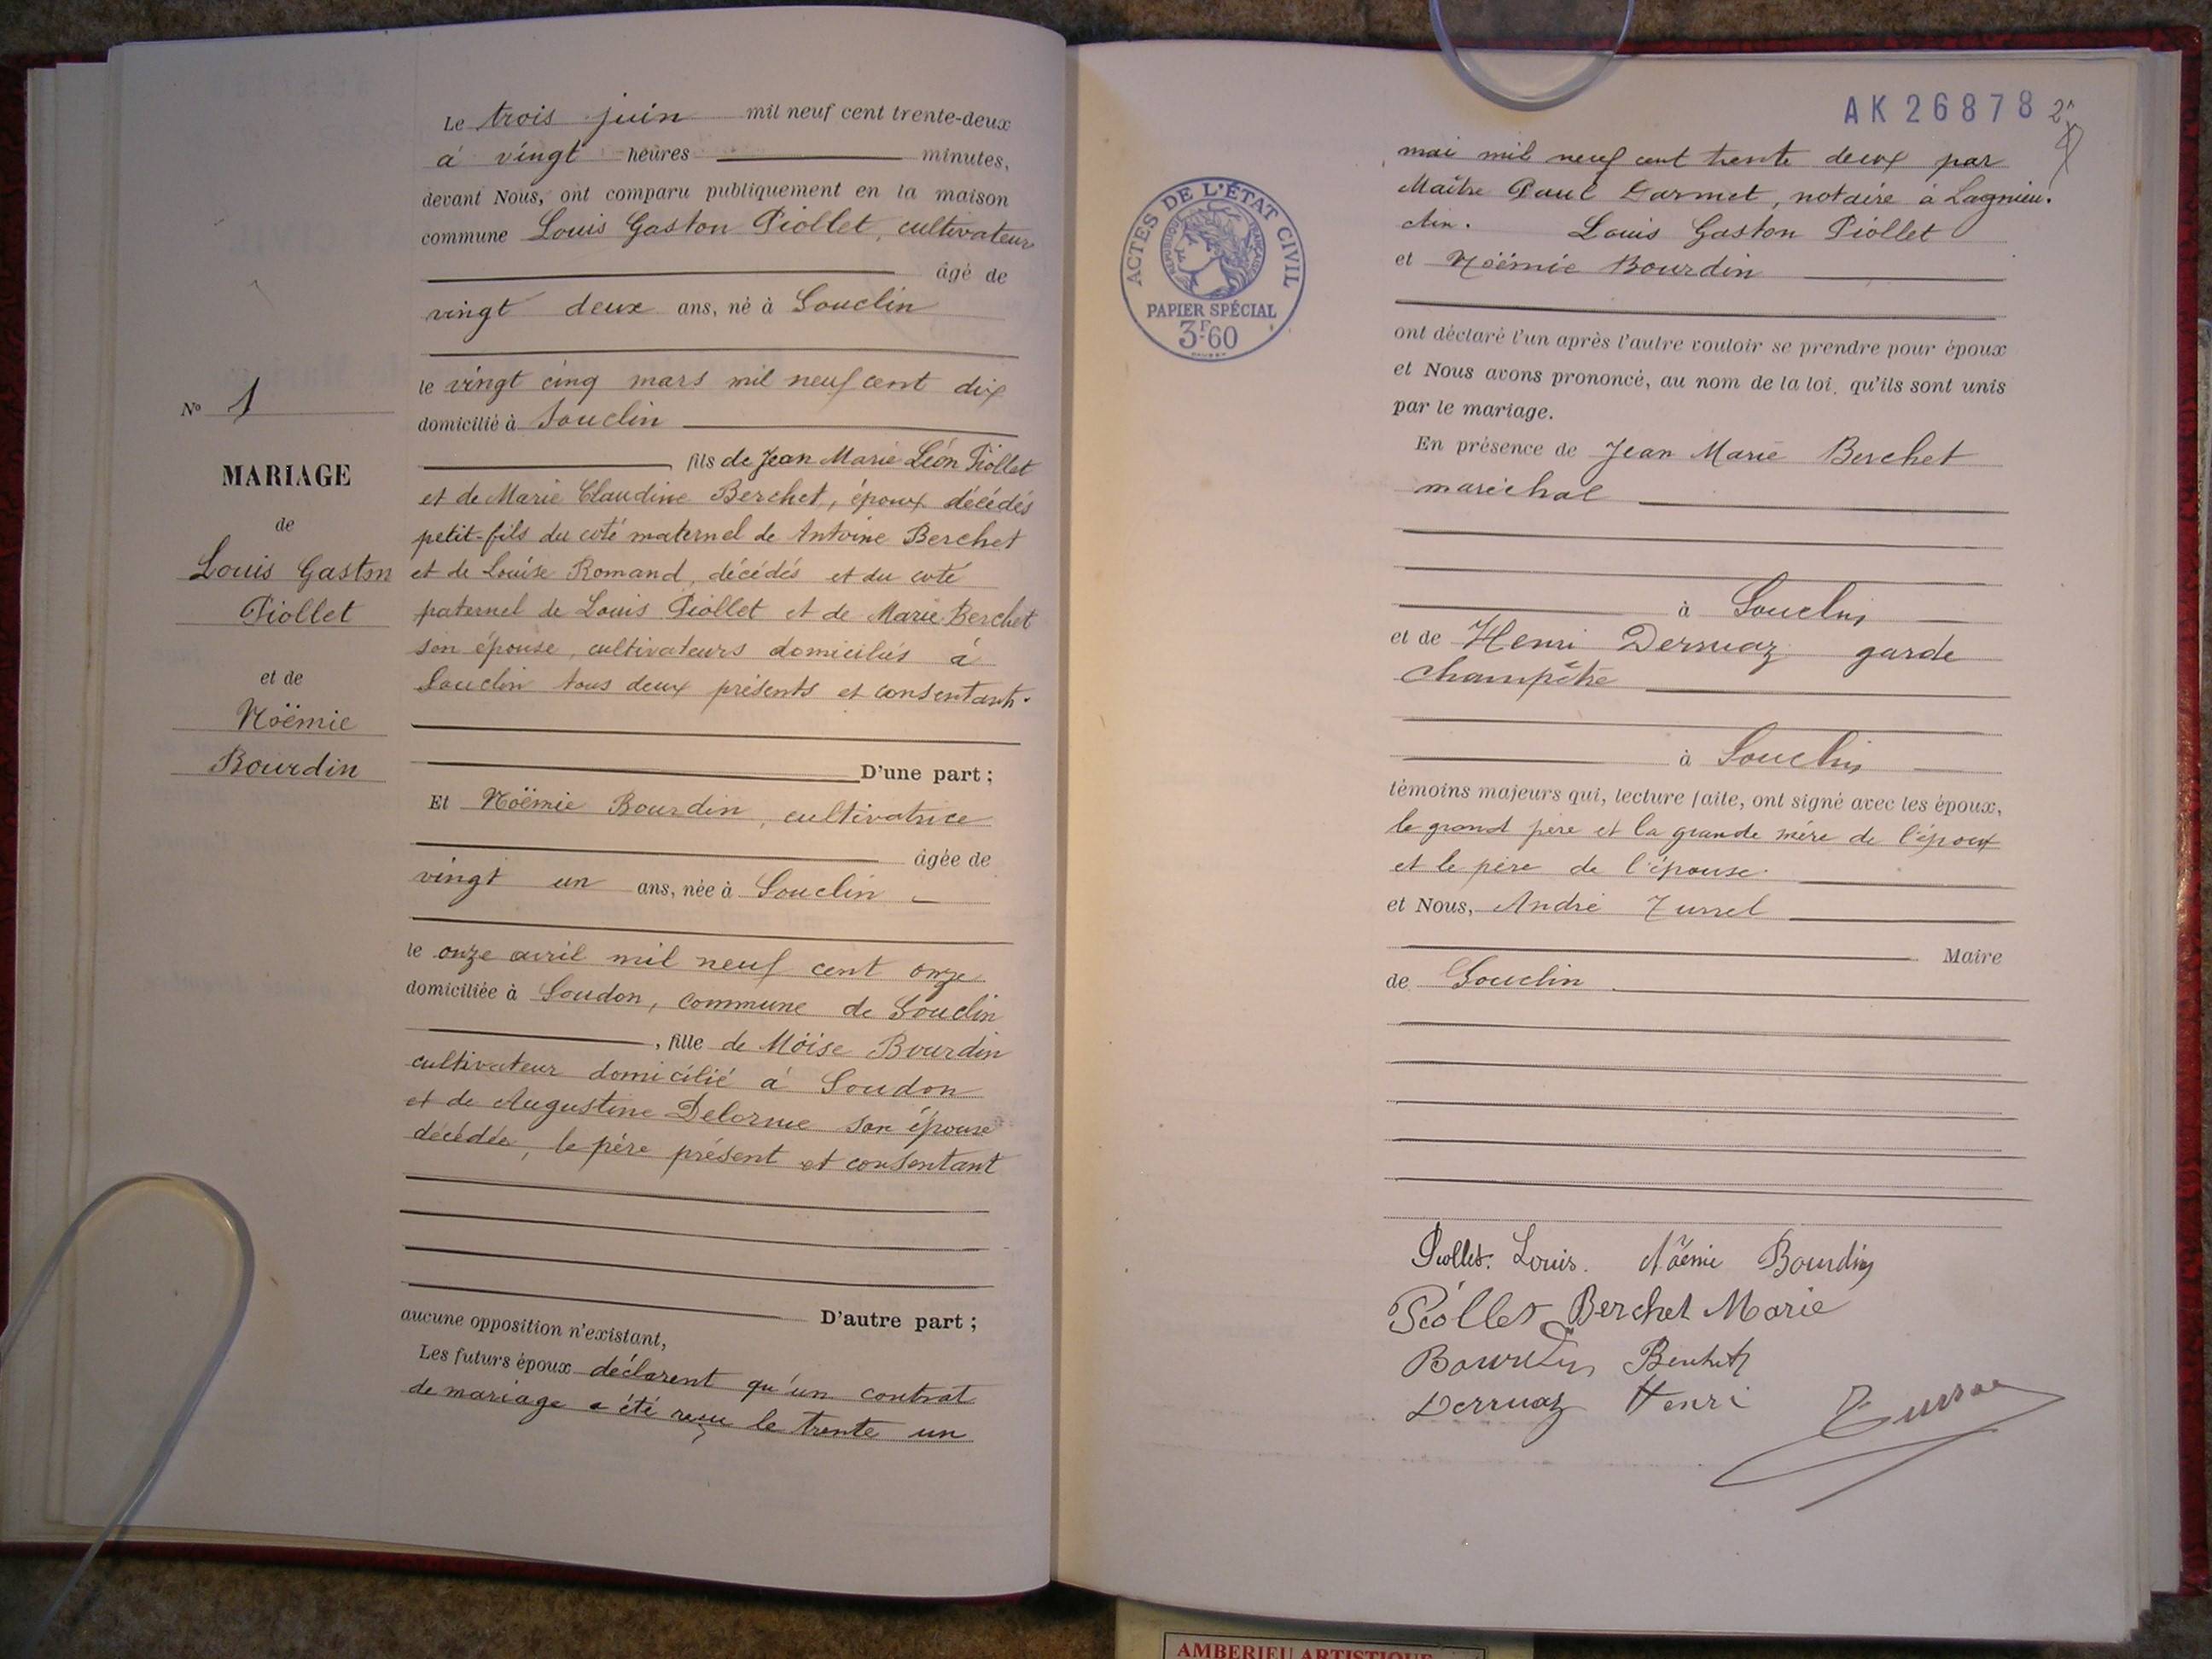 Le trois juin mil neuf cent trente-deux
à vingt heures minutes,
devant Nous, ont comparu publiquement en la maison
commune Louis Gaston Piollet, cultivateur
âgé de
vingt deux ans, né à Souclin
le vingt cinq mars mil neuf cent dix
domicilié à Souclin
fils de Jean Marie Léon Piollet
et de Marie Claudine Berchet, époux décédés
petit-fils du coté maternel de Antoine Berchet
et de Louise Romand, décédés et du coté
paternel de Louis Piollet et de Marie Berchet
son épouse, cultivateurs domiciliés à
Souclin tous deux présents et consentants.
D'une part ;
Et Nöëmie Bourdin, cultivatrice
âgée de
vingt un ans, née à Souclin
le onze avril mil neuf cent onze
domiciliée à Soudon, commune de Souclin
, fille de Möise Bourdin
cultivateur domicilié à Soudon
et de Augustine Delorme son épouse
décédée, le père présent et consentant
D'autre part ;
aucune opposition n'existant,
Les futurs époux déclarent qu'un contrat
de mariage a été reçu le trente un
N° 1
MARIAGE
de
Louis Gaston
Piollet
et de
Nöëmie
Bourdin
AK 26878
ACTES DE L'ÉTAT CIVIL
RÉPUBLIQUE FRANÇAISE
PAPIER SPÉCIAL
3F60
mai mil neuf cent trente deux par
Maître Paul Darmet, notaire à Lagnieu.
Ain. Louis Gaston Piollet
et Nöëmie Bourdin
ont déclaré l'un après l'autre vouloir se prendre pour époux
et Nous avons prononcé, au nom de la loi, qu'ils sont unis
par le mariage.
En présence de Jean Marie Berchet
maréchal
à Souclin
et de Henri Derruaz garde
champêtre
à Souclin
témoins majeurs qui, lecture faite, ont signé avec les époux,
le grand père et la grande mère de l'époux
et le père de l'épouse.
et Nous, André
Maire
de Souclin
Piollet. Louis. Nöémie Bourdin
Piollet Berchet Marie
Bourdin Berchet
Derruaz Henri
AMBERIEU ARTISTIQUE